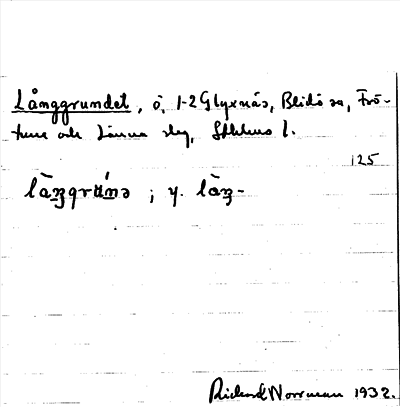 Långgrundet, ö, 1-2 Glyxnäs, Blidö sn, Frö-
tuna och Länna slg, Sthlms l.
125
la̋ŋgrűnə ; y. làŋ-
Rickard Norrman 1932.